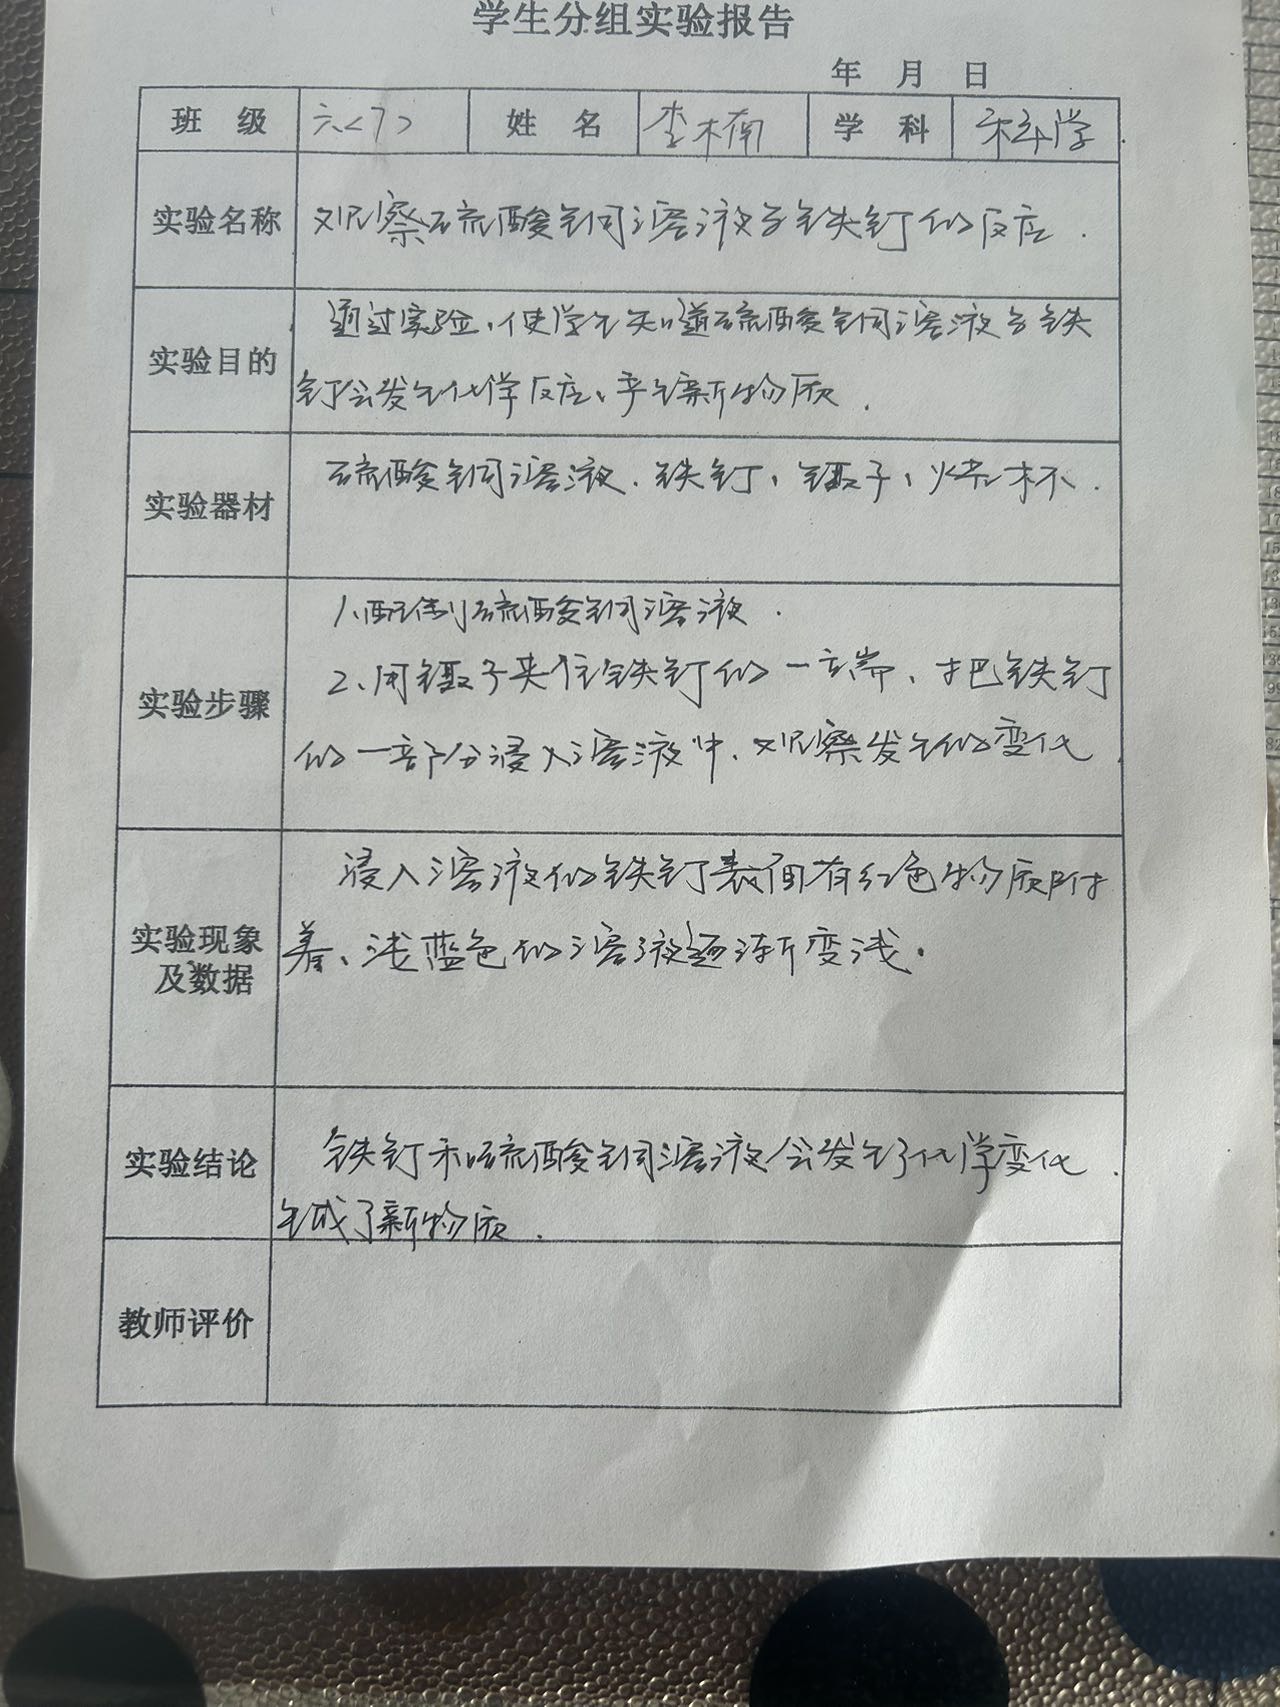 学生分组实验报告
年 月 日
班 级 六<7> 姓 名 李楠 学 科 科学
实验名称 观察硫酸铜溶液与铁钉的反应.
实验目的 通过实验、使学生知道硫酸铜溶液与铁
钉会发生化学反应、产生新物质.
实验器材 硫酸铜溶液、铁钉、镊子、烧杯.
实验步骤 1、配制硫酸铜溶液.
2、用镊子夹住铁钉的一端、把铁钉
的一部分浸入溶液中、观察发生的变化.
实验现象
及数据
浸入溶液的铁钉表面有红色物质附
着、浅蓝色的溶液逐渐变浅.
实验结论 铁钉和硫酸铜溶液会发生了化学变化.
生成了新物质.
教师评价